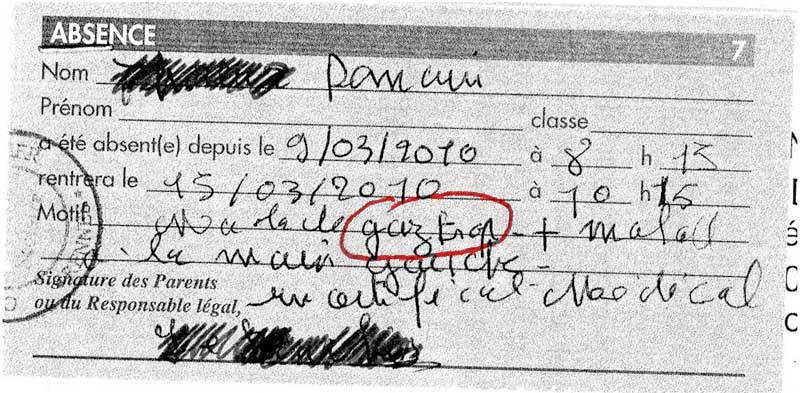 ABSENCE 7
Nom Damani
Prénom classe
a été absent(e) depuis le 9/03/2010 à 8 h 15
rentrera le 15/03/2010 à 10 h 15
Motif Malade gaz Trop + malad
à la main gauche -
Signature des Parents
ou du Responsable légal, un certifical Médical